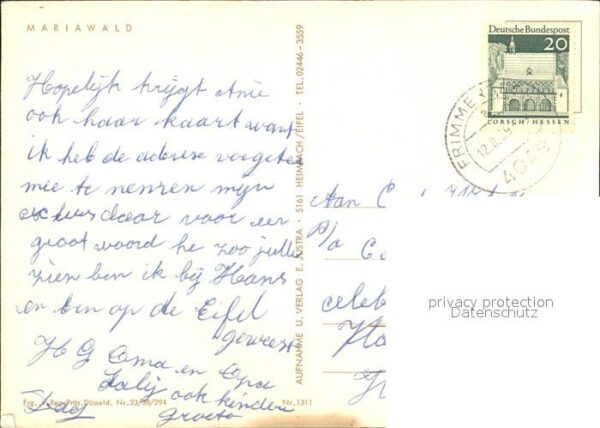 MARIAWALD
Hopelijk krijgt Anie
ook haar kaart want
ik heb de aderese vergeten
mee te nemen mijn
excuus daar voor een
groot woord he zoo jullie
zien ben ik bij Hans
en ben op de Eifel
geweest
H G Oma en Opa
ook kinderen
Dag
groete
Frg. Reg. Präs. Düsseld. Nr. 23/58/294
Nr. 1311
AUFNAHME U. VERLAG E. JUSTRA · 5161 HEIMBACH/EIFEL · TEL. 02446-3559
Deutsche Bundespost
20
LORSCH/HESSEN
12.8.
Aan
P/a
celeb
privacy protection
Datenschutz